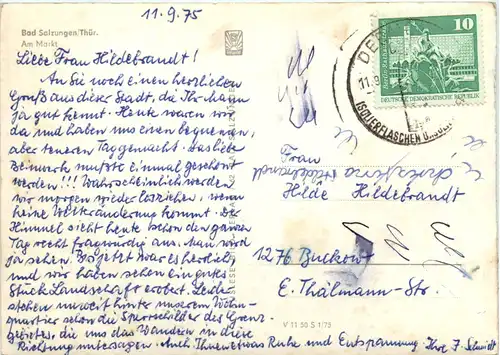 11.9.75
Bad Salzungen/Thür.
Am Markt
Liebe Frau Hildebrandt!
An Sie noch einen herzlichen
Gruß aus dieser Stadt, die Ihr Mann
ja gut kennt. Heute waren wir
da und haben uns einen bequemen,
aber teueren Tag gemacht. Das liebe
Beinwerk mußte einmal geschont
werden!!! Wahrscheinlich werden
wir morgen wieder losziehen, wenn
keine Wetteränderung kommt. Der
Himmel sieht heute schon den ganzen
Tag recht fragwürdig aus. Man wird
ja sehen. Bis jetzt war es herrlich,
und wir haben schon ein gutes
Stück Landschaft erobert. Leider
stehen unweit hinter unserem
quartier schon die Sperrschilder des Grenz-
gebietes, die uns das Wandern in diese
Richtung untersagen. Auch Ihnen etwas Ruhe und Entspannung. Ihre J. Schmidt
10
DEUTSCHE DEMOKRATISCHE REPUBLIK
ISOLIERFLASCHEN
Frau
Hilde Hildebrandt
1276 Buckow
E.-Thälmann-Str.
V 11 50 S 1/73